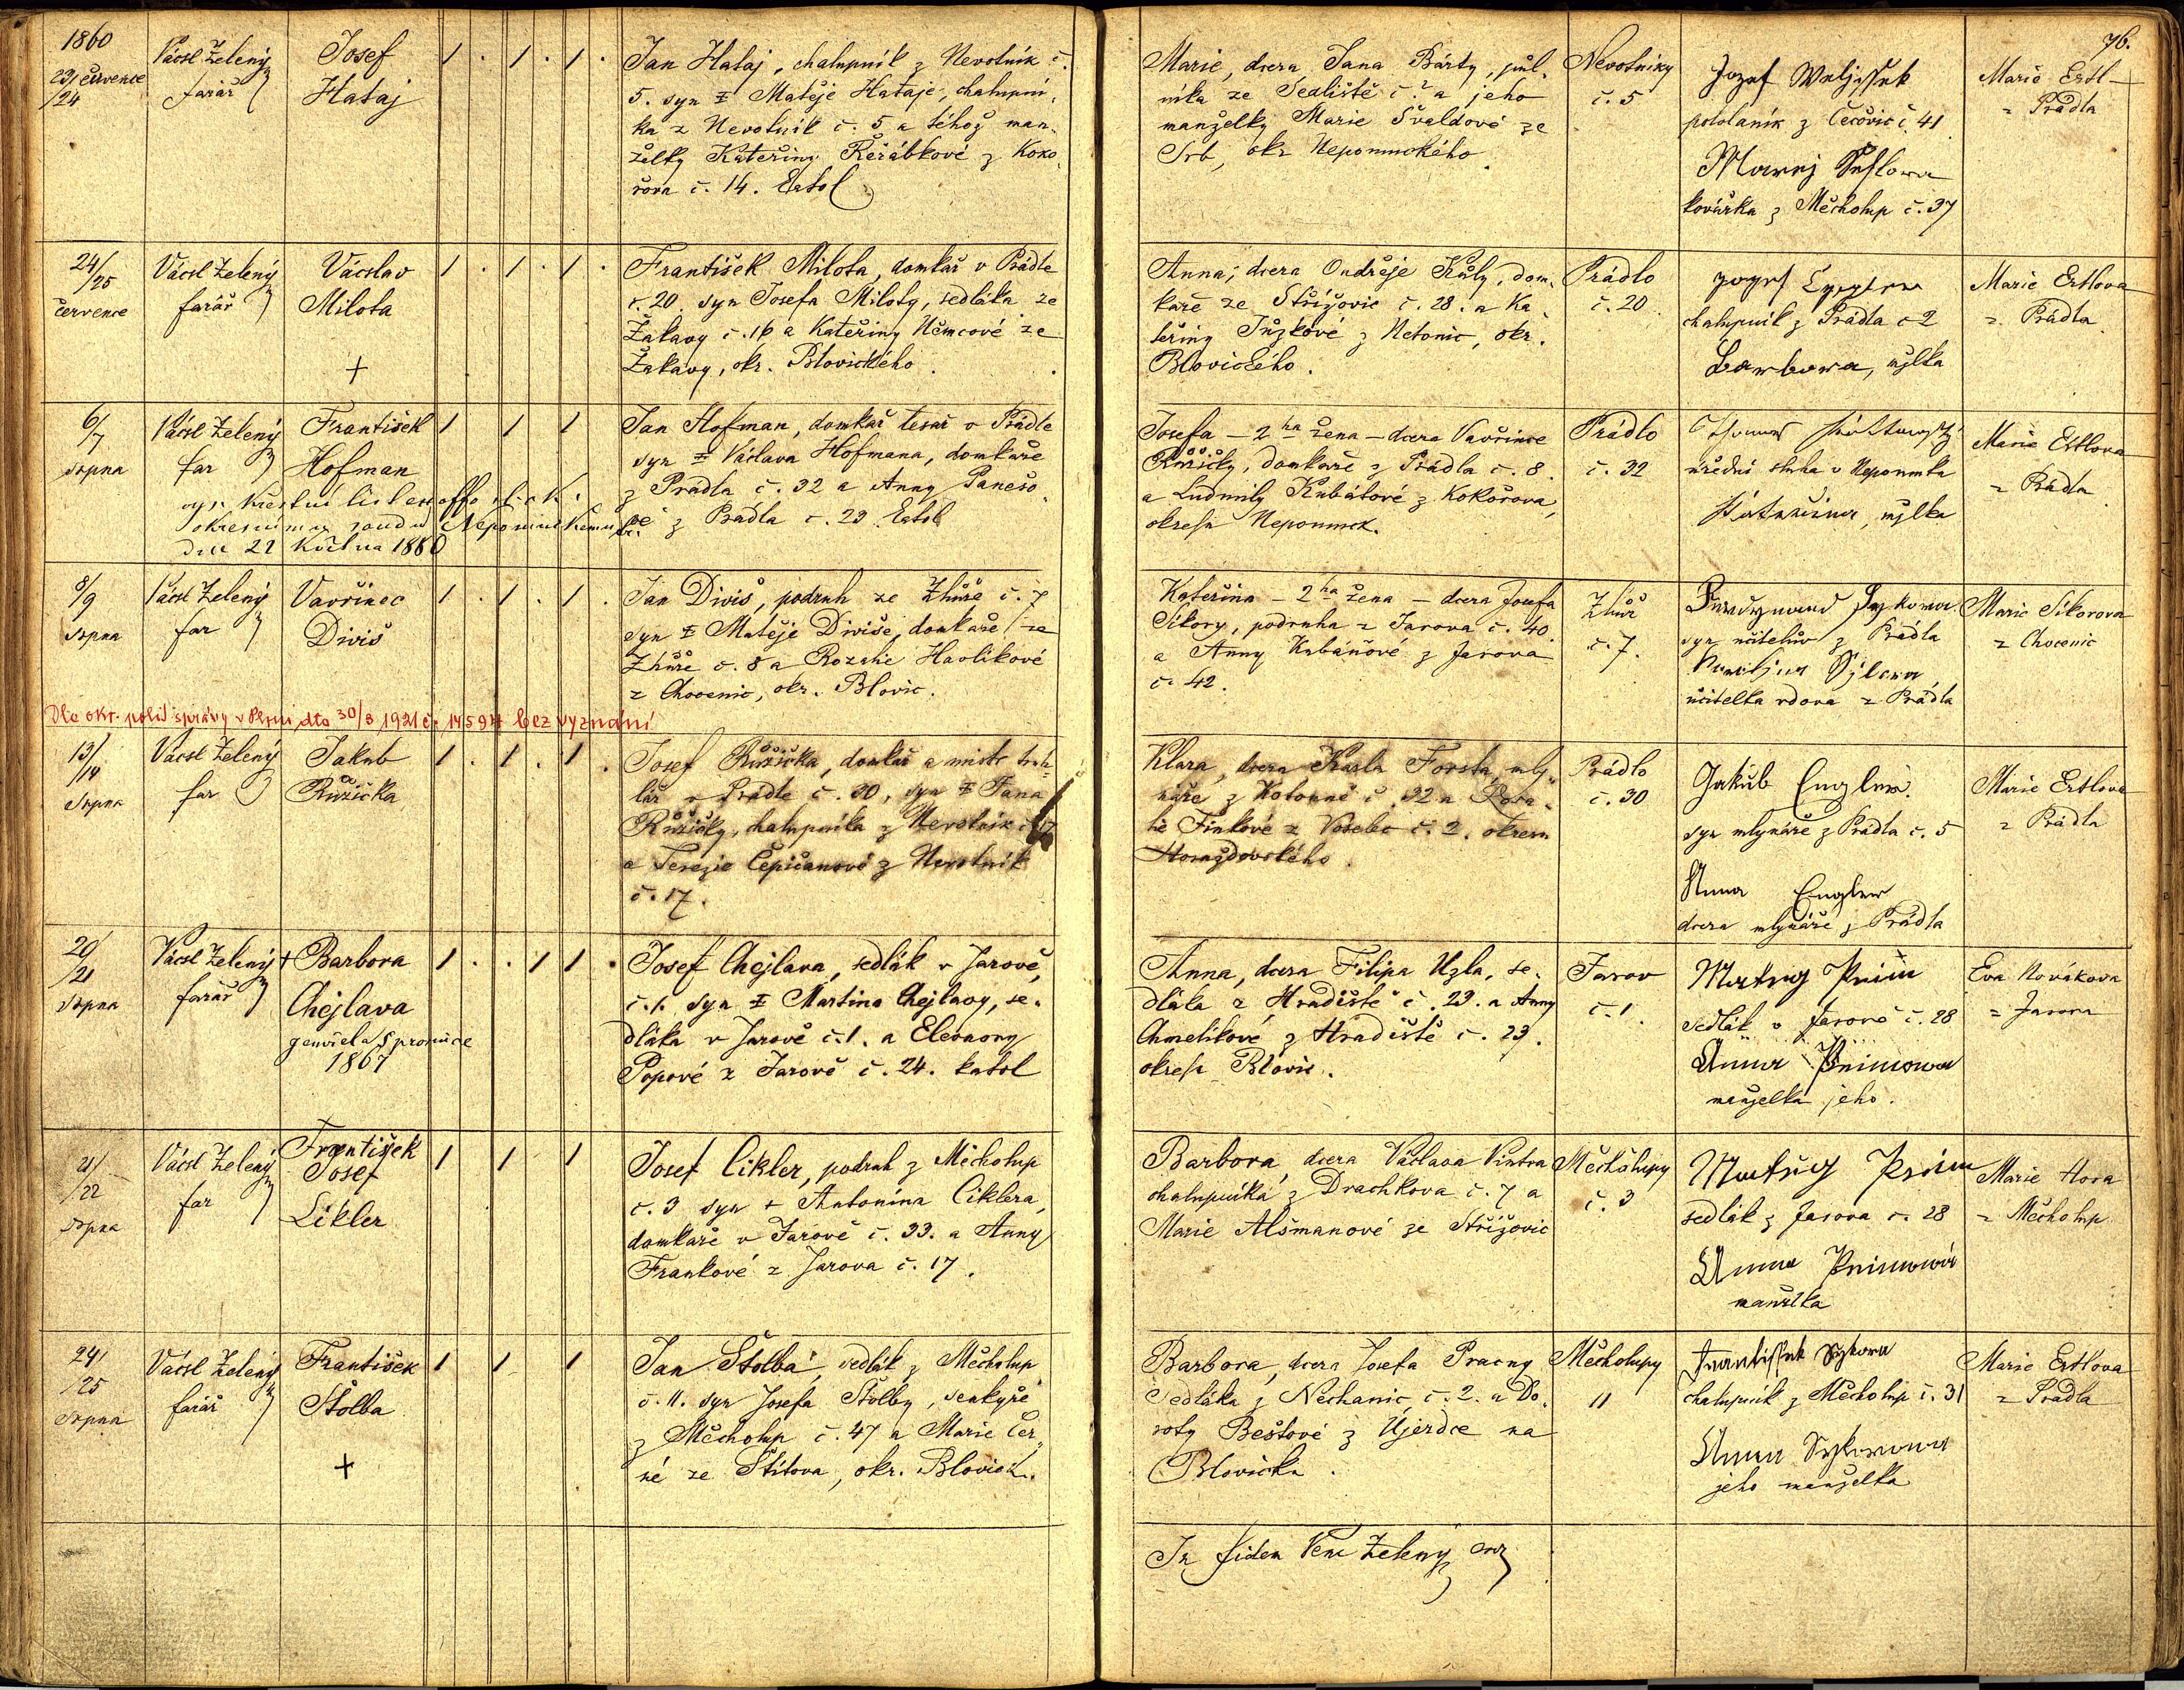 76.
1860
23/ července
/24
Vácsl Zelený
farář
Josef
Hataj
1 . 1 . 1 .
Jan Hataj, chalupník z Nevotník č.
5. syn † Matěje Hataje, chalupní-
ka z Nevotník č. 5 a téhož man-
želky Kateřiny Řeřábkové z Koko-
řova č. 14.
Marie, dcera Jana Bárty, půl-
níka ze Sedliště č. a jeho
manželky Marie Švaldové ze
Srb, okr. Nepomuckého.
Nevotníky
č. 5
pololaník z Čečovic č. 41
kovářka z Měcholup č. 37
Marie Ertl
z Prádla
24/
/25
července
Vácsl Zelený
farář
Václav
Milota
+
1 . 1 . 1 .
František Milota, domkař v Prádle
č. 20 syn Josefa Miloty, sedláka ze
Žákavy č. 16 a Kateřiny Němcové ze
Žákavy, okr. Blovického.
Anna, dcera Ondřeje Kůly, dom-
káře ze Střížovic č. 28. a Ka-
teřiny Jůzkové z Netonic, okr.
Blovického.
Prádlo
č. 20
chalupník z Prádla č 2
Barbora, mžlka
Marie Ertlova
z Prádla
6/
/7
srpna
Vácsl Zelený
far
František
Hofman
okresnímu soudu Nepomuckému
dne 22 května 1880
1 1 1
Jan Hofman, domkář tesař v Prádle
syn † Václava Hofmana, domkaře
z Prádla č. 32 a Anny Panešo-
vé z Prádla č. 29.
Josefa – 2há žena – dcera Vavřince
Růžičky, domkaře z Prádla č. 8
a Ludmily Kubátové z Kokořova,
okresu Nepomuck.
Prádlo
č. 32
úřední sluha v Nepomuku
Kateřina, mžlka
Marie Ertlova
z Prádla
8/
/9
srpna
Vácsl Zelený
far
Vavřinec
Diviš
1 . 1 . 1 .
Jan Diviš, podruh ze Zhůře č. 7
syn † Matěje Diviše, domkaře ze
Zhůře č. 8 a Rozalie Havlíkové
z Chocenic, okr. Blovic.
Kateřina – 2há žena – dcera Josefa
Sikory, podruha z Jarova č. 40.
a Anny Kubáňové z Jarova
č. 42.
Zhůř
č. 7.
syn učitelův z Prádla
učitelka vdova z Prádla
Marie Sikorova
z Chocenic
Dle okr. polit správy v Plzni dto 30/3 1921 č. 14594 bez vyznání
13/
/14
srpna
Vácsl Zelený
far
Jakub
Růžička
1 . 1 . 1 .
Josef Růžička, domkař a mistr truh-
lář v Prádle č. 30, syn † Jana
Růžičky, chalupníka z Nevotník č. 17
a Terezie Čepičanové z Nevotník
č. 17.
Klara, dcera Karla Forsta, mly-
náře z Kotouně č. 32 a Rosa-
lie Finkové z Voselec č. 2. okresu
Horažďovského.
Prádlo
č. 30
Jakub Engler
syn mlynáře z Prádla č. 5
Anna Engler
dcera mlynáře z Prádla
Marie Ertlova
z Prádla
20/
/21
srpna
Vácsl Zelený
farář
† Barbora
Chejlava
zemřela 8 prosince
1867
1 . . 1 1 .
Josef Chejlava, sedlák v Jarově,
č. 1. syn † Martina Chejlavy, se-
dláka v Jarově č. 1. a Eleonory
Popové z Jarově č. 24. katol
Anna, dcera Filipa Uzla, se-
dláka z Hradiště č. 23. a Anny
Chmelíkové z Hradiště č. 23.
okresu Blovic.
Jarov
č. 1.
sedlák v Jarově č. 28
manželka jeho.
Eva Novákova
z Jarova
21/
/22
srpna
Vácsl Zelený
far
František
Josef
Cikler
1 1 1
Josef Cikler, podruh z Měcholup
č. 3 syn † Antonína Ciklera,
domkaře v Jarově č. 33. a Anny
Frankové z Jarova č. 17.
Barbora, dcera Václava Vintra
chalupníka z Drachkova č. 7 a
Marie Alšmanové ze Střížovic
Měcholupy
č. 3
sedlák z Jarova č. 28
manželka
Marie Hora
z Měcholup
24/
/25
srpna
Vácsl Zelený
farář
František
Štolba
+
1 1 1
Jan Štolba, sedlák z Měcholup
č. 11. syn Josefa Štolby, šenkýře
z Měcholup č. 47 a Marie Čer-
né ze Štítova, okr. Blovick.
Barbora, dcera Josefa Pracny
sedláka z Nechanic, č. 2. a Do-
roty Beštové z Ujezdce na
Blovicku.
Měcholupy
11
František Sykora
chalupník z Měcholup č. 31
Anna Sykorova
jeho manželka
Marie Ertlova
z Prádla
In fidem Venc Zelený